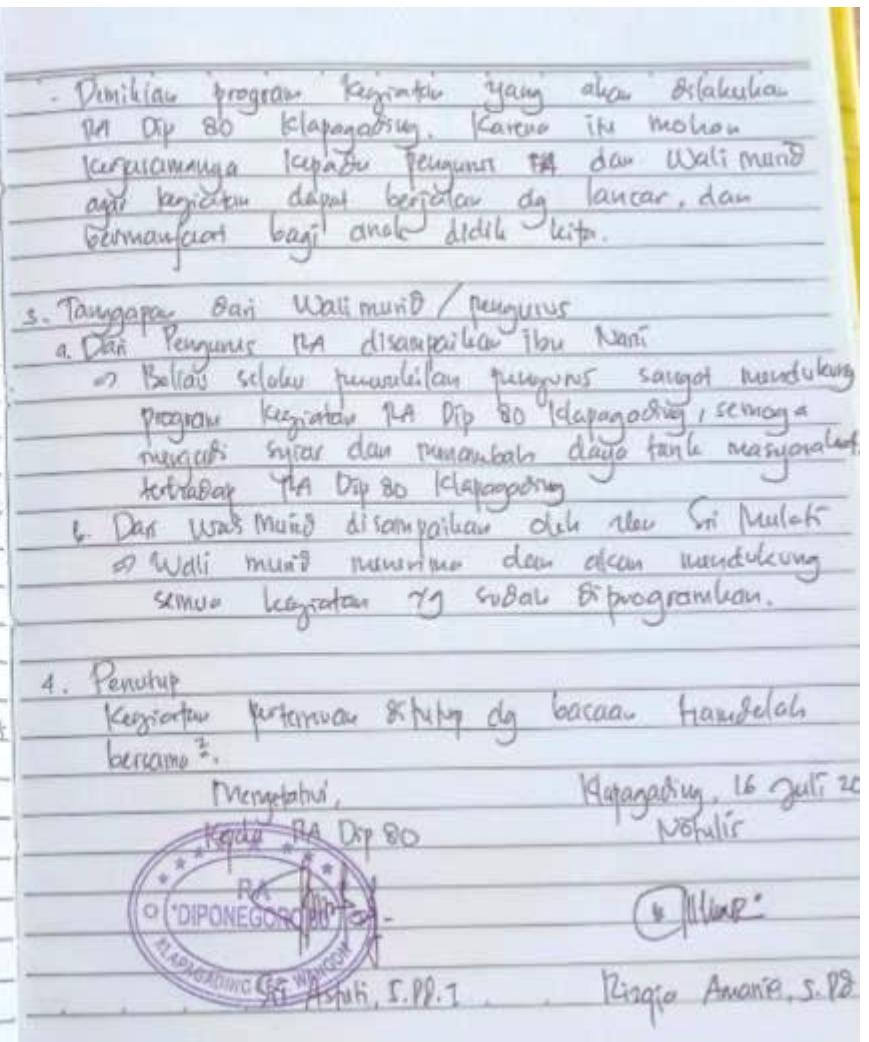 - Demikian program kegiatan yang akan dilakukan
RA Dip 80 Klapagading. Karena itu mohon
kerjasamanya kepada Pengurus RA dan Wali murid
agar kegiatan dapat berjalan dg lancar, dan
bermanfaat bagi anak didik kita.
3. Tanggapan dari Wali murid / pengurus
a. Dari Pengurus RA disampaikan ibu Nani
⇒ Beliau selaku perwakilan pengurus sangat mendukung
program kegiatan RA Dip 80 Klapagading, semoga
menjadi syiar dan menambah daya tarik masyarakat
terhadap RA Dip 80 Klapagading
b. Dari Wali Murid disampaikan oleh Sri Mulati
⇒ Wali murid menerima dan akan mendukung
semua kegiatan yg sudah diprogramkan.
4. Penutup
Kegiatan pertemuan ditutup dg bacaan hamdalah
bersama².
Mengetahui,
Klapagading, 16 Juli 20
Kepala RA Dip 80
Notulis
RA
"DIPONEGORO 80"
KLAPAGADING KEC. WANGON
Sri Astuti, S.Pd.I
Rizqia Amania, S.Pd